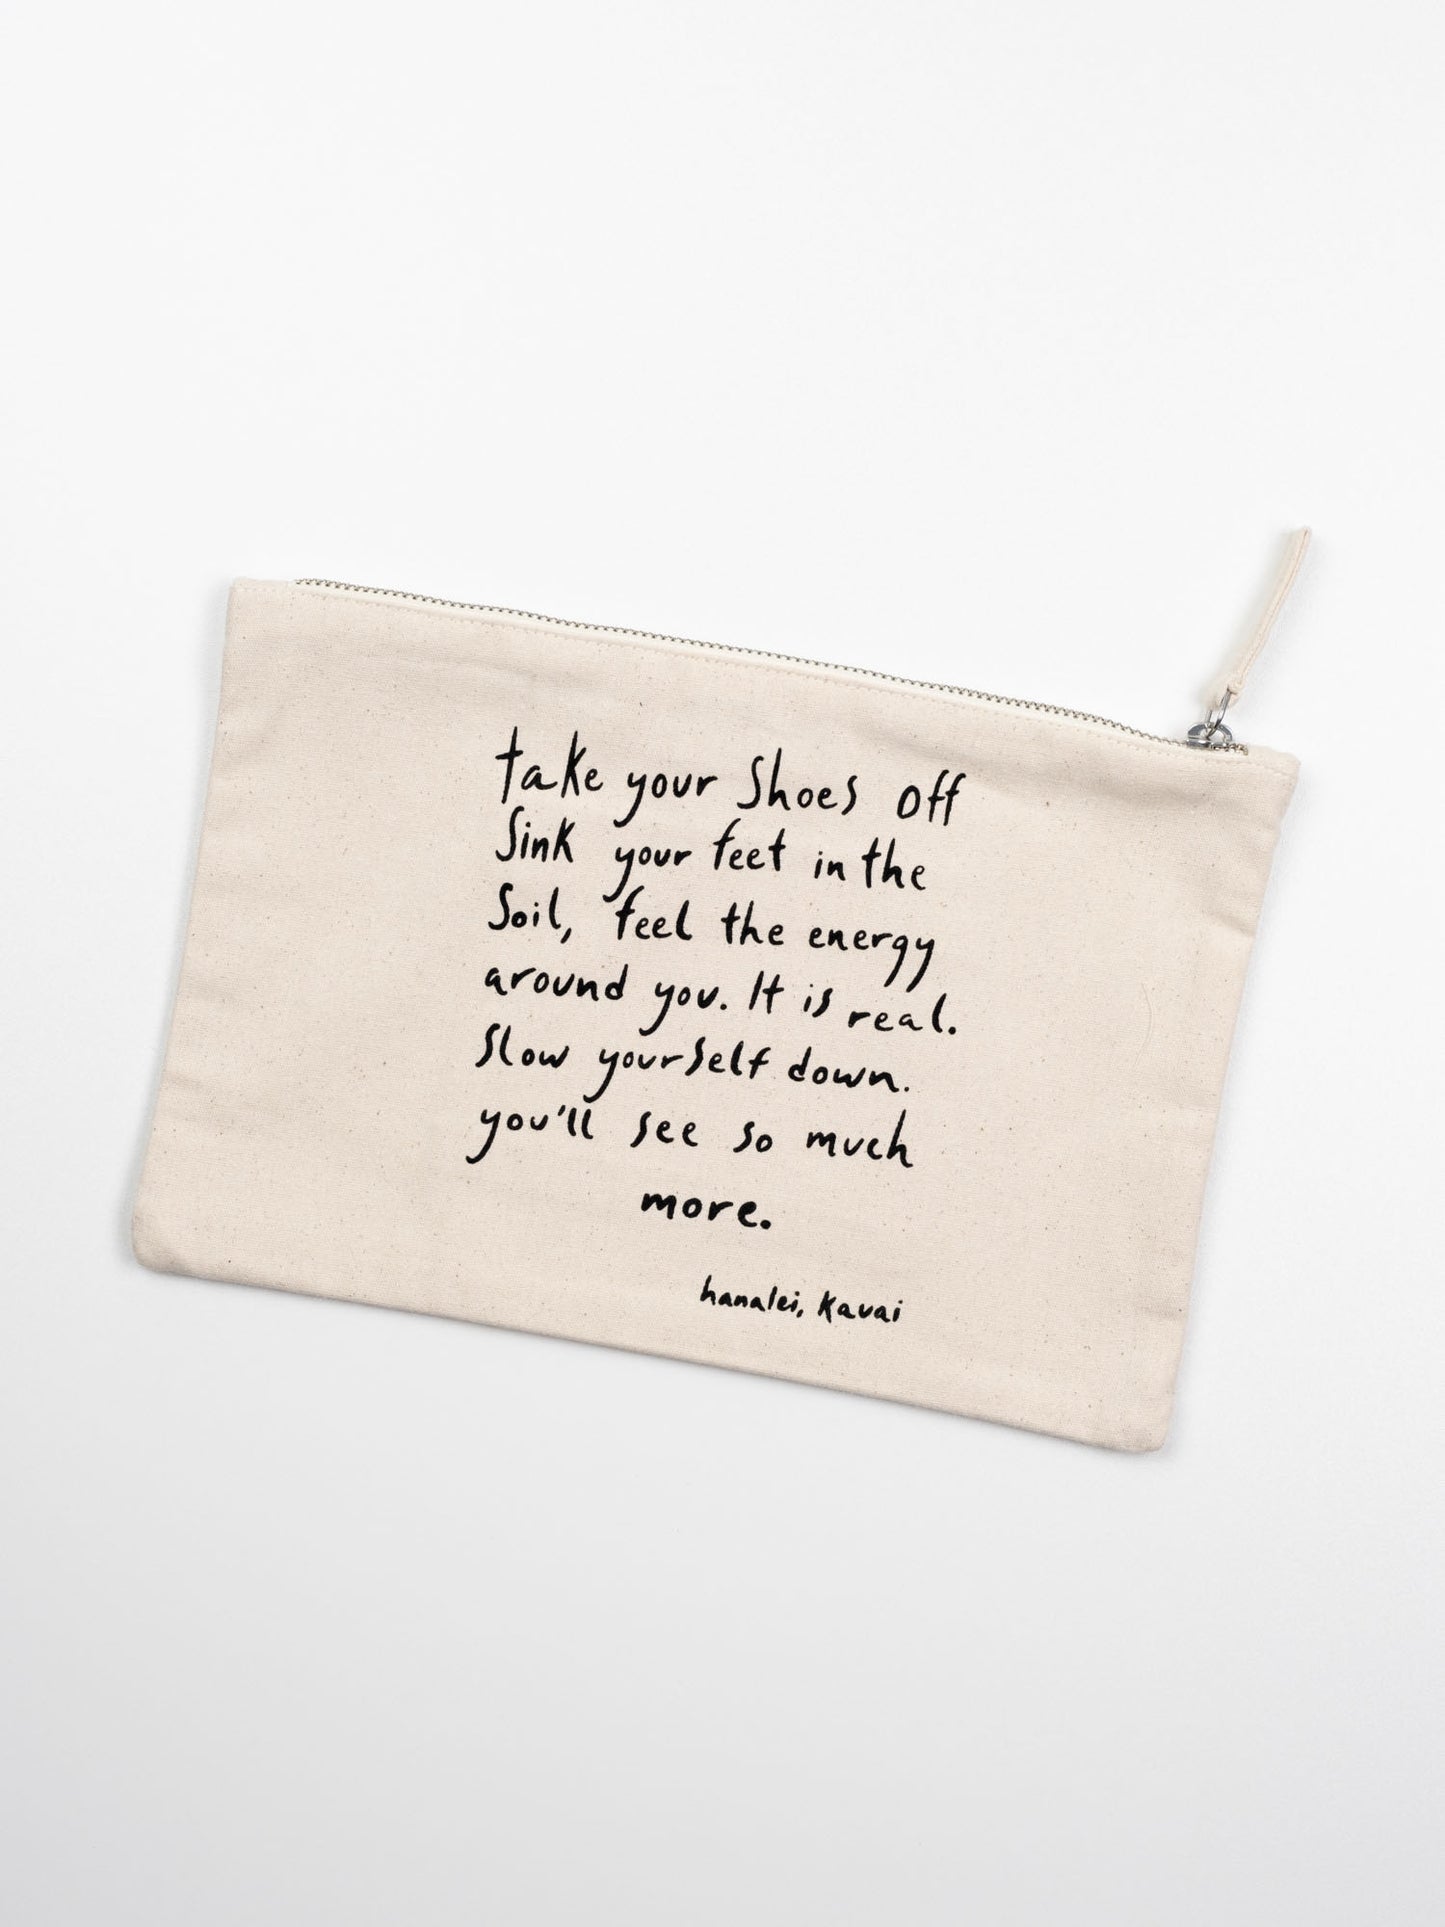 take your Shoes off
Sink your feet in the
Soil, feel the energy
around you. It is real.
Slow yourself down.
you'll see so much
more.
hanalei, Kauai